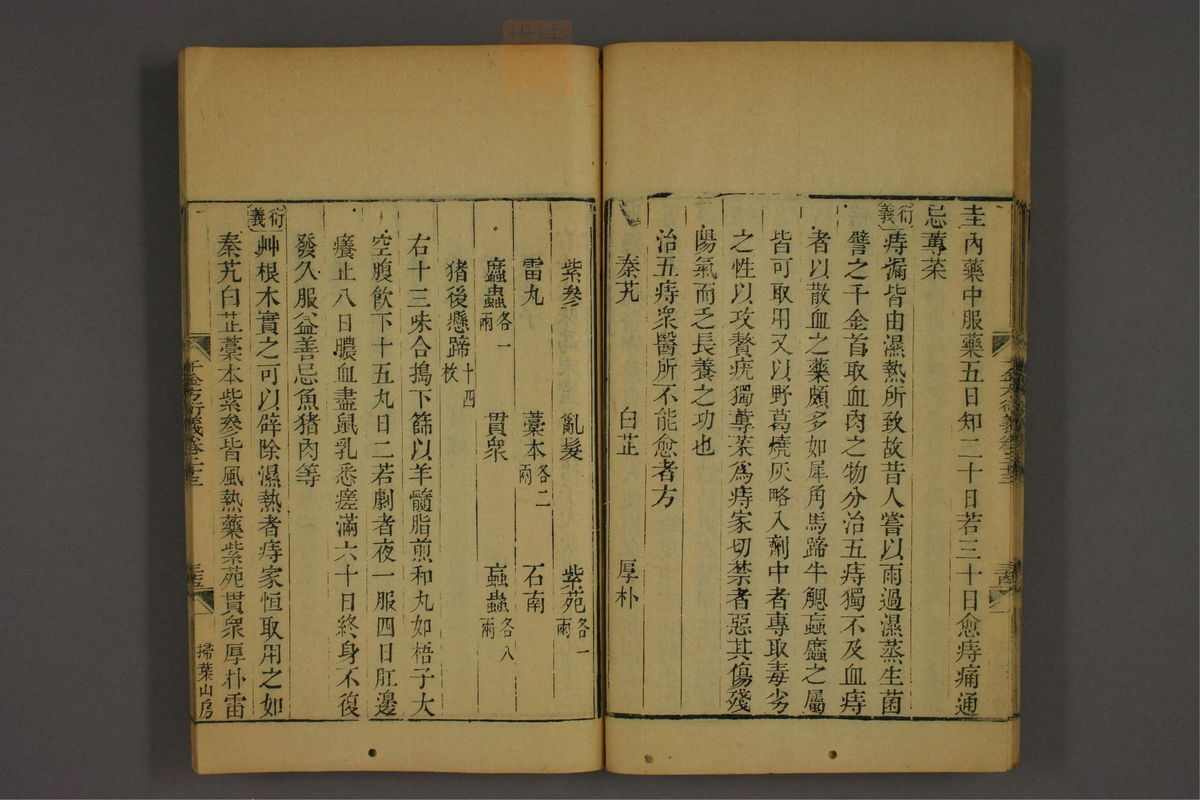 圭內藥中服藥五日知二十日若三十日愈痔痛通
忌蓴菜
衍義 痔漏皆由濕熱所致故昔人嘗以雨過濕蒸生菌
譬之千金首取血肉之物分治五痔獨不及血痔
者以散血之藥頗多如犀角馬蹄牛䚡蝱䗪之屬
皆可取用又以野葛燒灰略入劑中者專取毒劣
之性以攻贅疣獨蓴菜為痔家切禁者惡其傷殘
陽氣而乏長養之功也
治五痔眾醫所不能愈者方
秦艽 白芷 厚朴
紫參 亂髮 紫苑各一兩
雷丸 藁本各二兩 石南
䗪蟲各一兩 貫眾 蝱蟲各八兩
猪後懸蹄十四枚
右十三味合搗下篩以羊髓脂煎和丸如梧子大
空腹飲下十五丸日二若劇者夜一服四日肛邊
癢止八日膿血盡鼠乳悉瘥滿六十日終身不復
發久服益善忌魚猪肉等
衍義 艸根木實之可以辟除濕熱者痔家恒取用之如
秦艽白芷藁本紫參皆風熱藥紫苑貫眾厚朴雷
掃葉山房